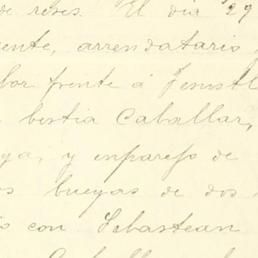 de reses. El dia 29
ente, arrendatario
bor frente á
bestia Caballar,
ya, y enparejo de
os bueyas de dos
con Sebastean